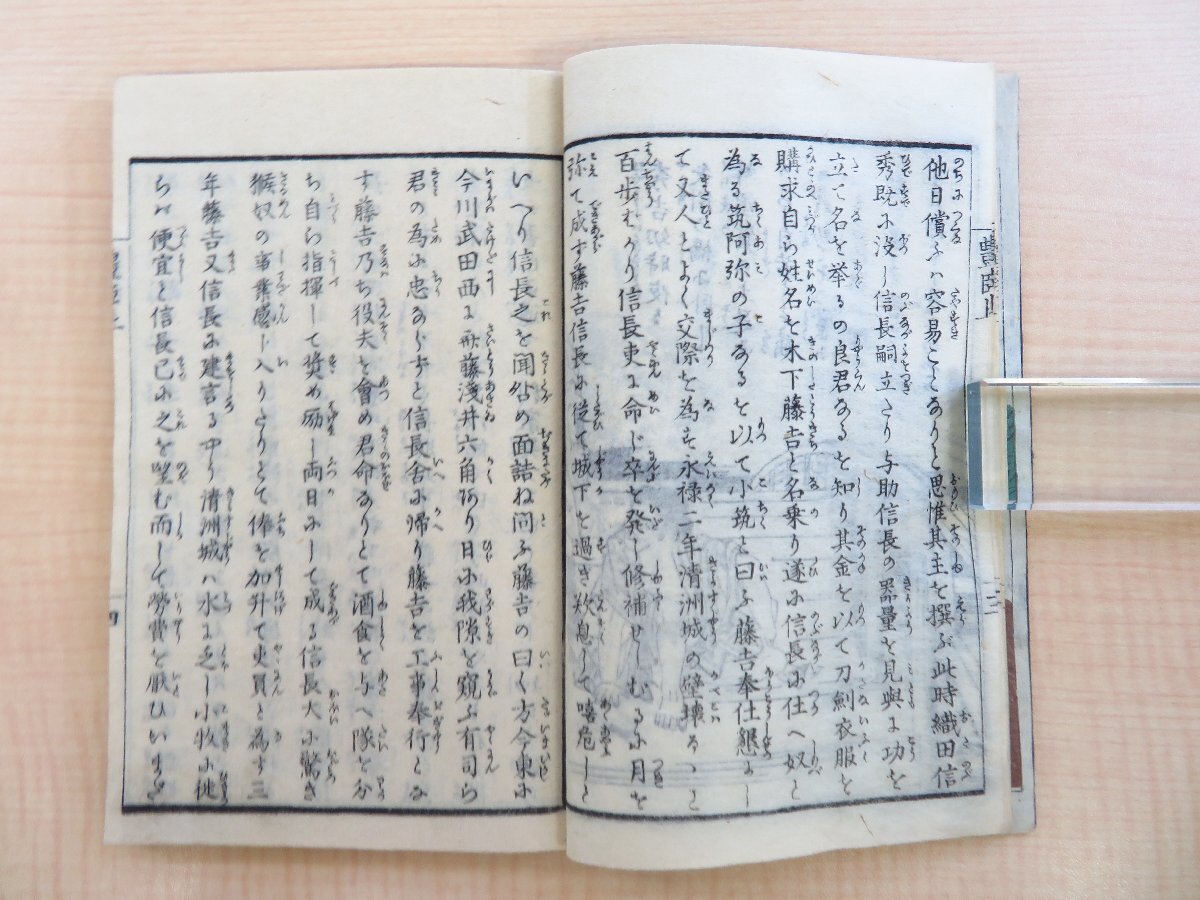 他日償ふハ容易ことありと思惟其主を撰ぶ此時織田信
秀既に没し信長嗣立たり与助信長の器量を見與に功を
立て名を挙るの良君なるを知り其金を以て刀剣衣服を
購求自ら姓名を木下藤吉と名乗り遂に信長に仕へ奴と
為る筑阿弥の子なるを以て小筑と曰ふ藤吉奉仕懇にし
て又人とよく交際を為す永禄二年清洲城の壁壊るゝこと
百歩むかり信長吏に命じ卒を発し修補せしむるに月を
弥て成す藤吉信長に従て城下を過き歎息して嘻危しと
いへり信長之を聞咎め面詰ね問ふ藤吉の曰く方今東に
今川武田西に斎藤浅井六角あり日に我隙を窺ふ有司ら
君の為に忠ならずと信長舎に帰り藤吉を工事奉行とな
す藤吉乃ち役夫を會め君命なりとて酒食を与へ隊を分
ち自ら指揮して奨め励し両日にして成る信長大に驚き
猴奴の事業感じ入りたりとて俸を加升て吏員と為す三
年藤吉又信長に建言る中り清洲城ハ水に乏し小牧に徙
らハ便宜と信長已に之を望む而して労費を厭ひいまだ
豊臣上
三
四